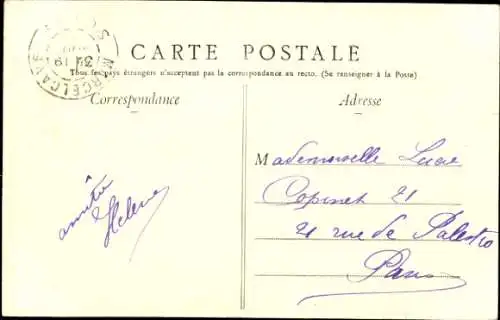 MARCELCAVE
CARTE POSTALE
Tous les pays étrangers n'acceptent pas la correspondance au recto. (Se renseigner à la Poste)
Correspondance
Adresse
Mademoiselle Lucie
Copinet 21
21 rue de Palestro
Paris
amitié
Helene